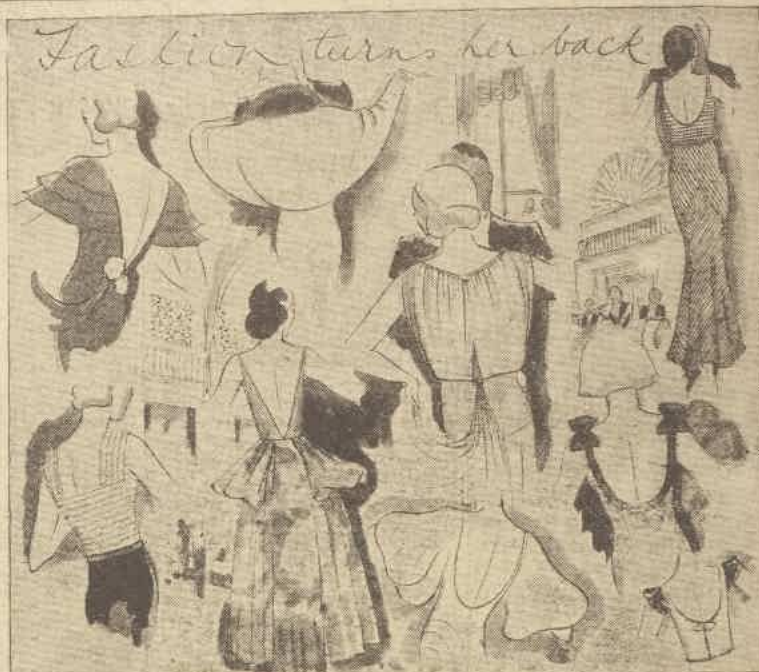 Fashion turns her back